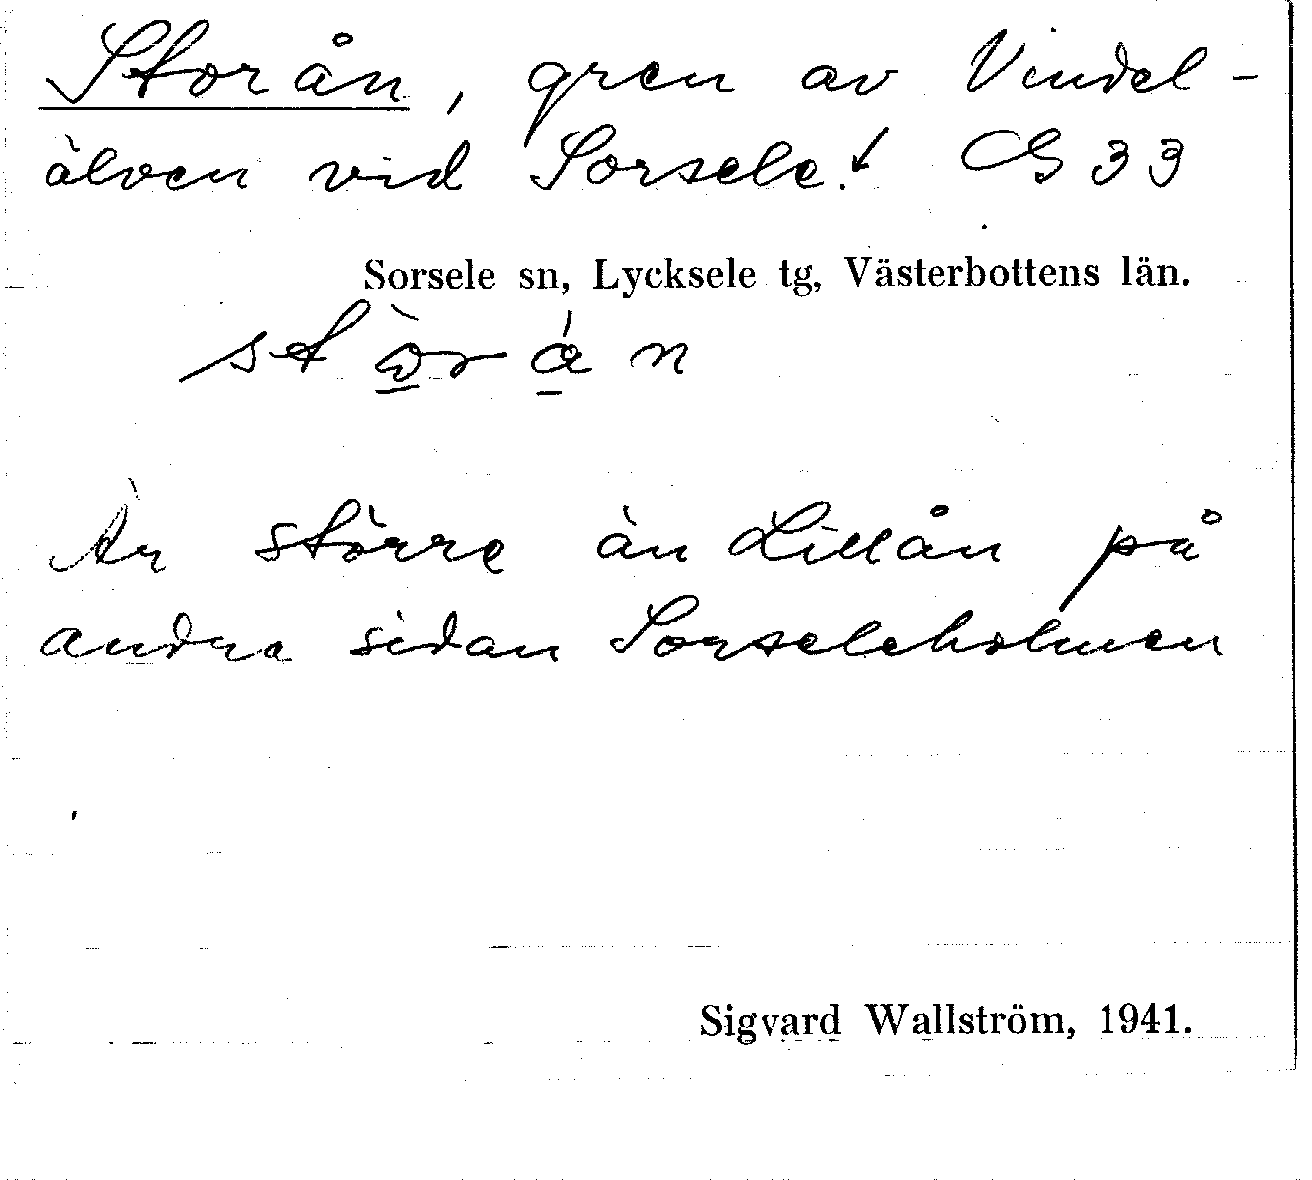 Storån, gren av Vindel-
älven vid Sorsele! GS 33
Sorsele sn, Lycksele tg, Västerbottens län.
Är större än Lillån på
andra sidan Sorseleholmen
Sigvard Wallström, 1941.